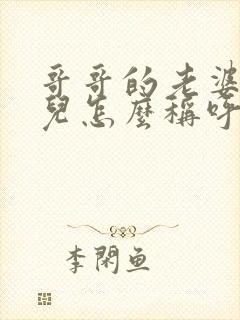 哥哥的老婆
兒怎麼稱呼
李閑魚